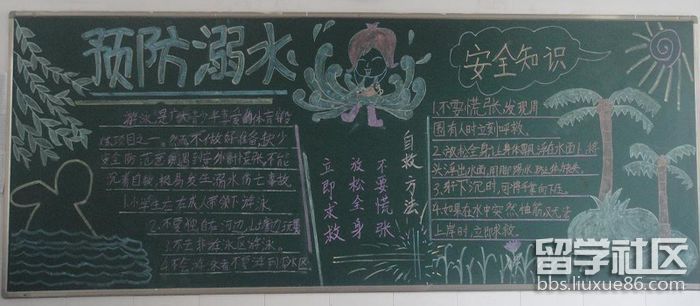 预防溺水
游泳是广大青少年喜爱的体育锻
炼项目之一。然而不做好准备、缺少
安全防范意识,遇到意外时慌张、不能
沉着自救,极易发生溺水伤亡事故。
1.小学生应在成人带领下游泳。
2.不要独自在河边、山塘边玩耍
3.不去非游泳区游泳。
4.不会游泳者不要游到深水区
自救方法
不要慌张
放松全身
立即求救
安全知识
1.不要慌张,发现周
围有人时立刻呼救。
2.放松全身,让身体飘浮在水面上,将
头浮出水面,用脚踢水
3.身体下沉时,可将手掌向下压。
4.如果在水中突然抽筋,又无法
上岸时,立即求救。
留学社区
bbs.liuxue86.com